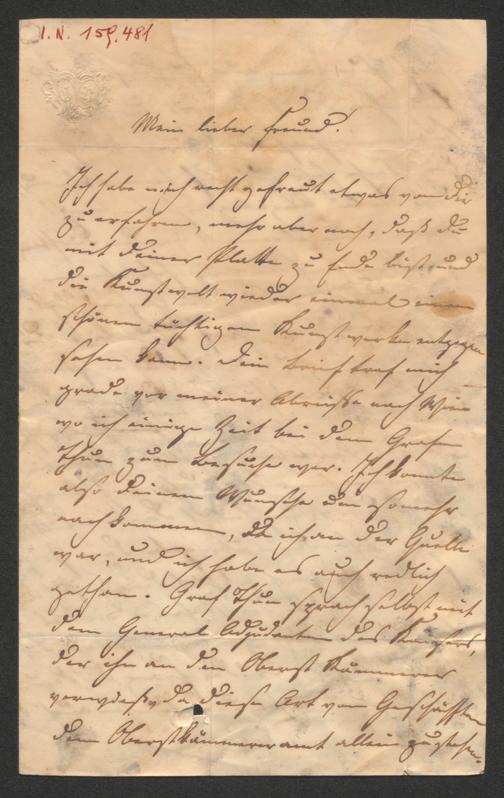 I.N. 159.481
Mein lieber Freund!
Ich habe mich recht gefreut etwas von Dir
zu erfahren, mehr aber noch, daß Du
mit Deiner Platte zu Ende bist, und
die Kunstwelt wieder einmal einem
schönen tüchtigem Kunstwerke entgegen
sehen kann. Dein Brief traf mich
grade vor meiner Abreise nach Wien
wo ich einige Zeit bei dem Grafen
Thun zum Besuche war. Ich konnte
also Deinem Wunsche um so mehr
nachkommen, da ich an der Quelle
war, und ich habe es auch redlich
gethan. Graf Thun sprach selbst mit
dem General Adjudanten des Kaisers,
der ihn an den Oberst Kämmerer
verwieß, da diese Art von Geschäften
dem Oberstkämmereramt allein zustehen.